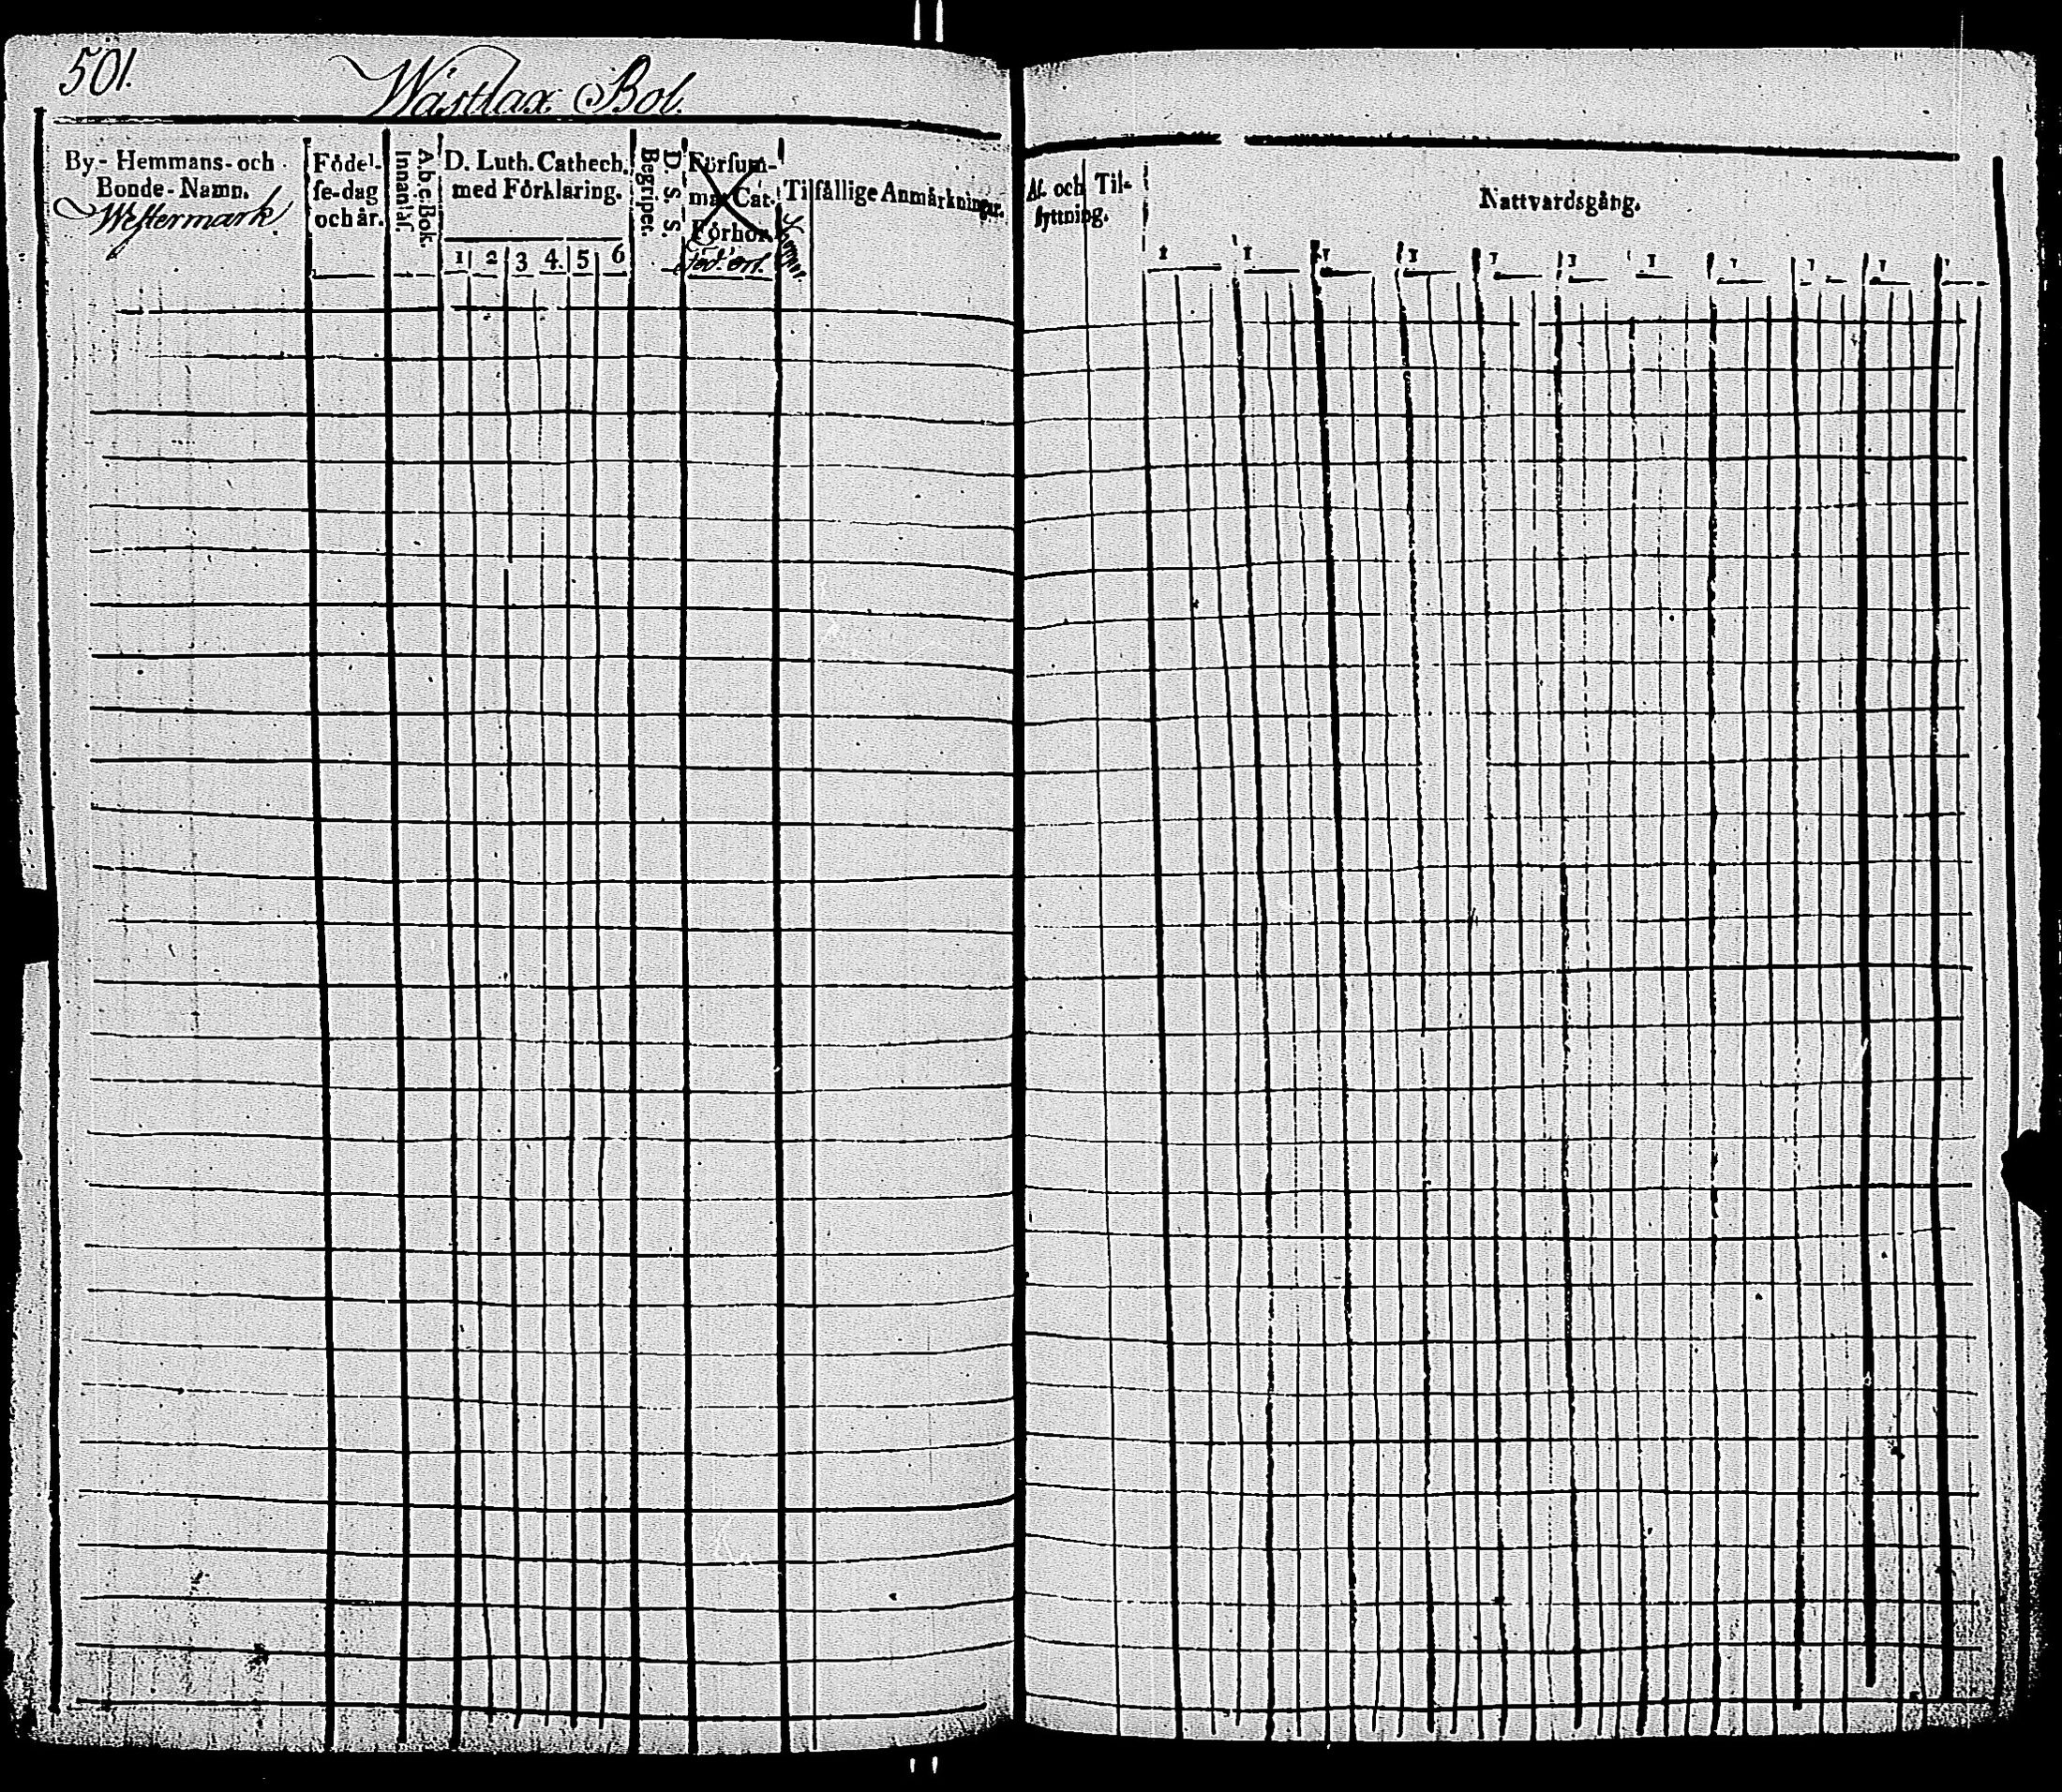 501.
Wästlax Bol.
By- Hemmans- och
Bonde-Namn.
Westermark.
Födel-
se-dag
och år.
A.b.c.Bok.
Innanläs.
D. Luth. Cathech.
med Förklaring.
1 2 3 4. 5 6
D. S. S.
Begriper.
Försum-
ma Cat.
Förhör.
Föd. ort.
Tilfällige Anmärkningar.
Af. och Til-
flyttning.
Nattvardsgång.